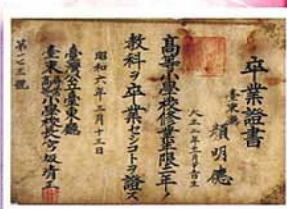 卒業證書
臺東廳
賴明德
大正二年十月廿日生
高等小學校修業年限二年ノ
教科ヲ卒業セシコトヲ證ス
昭和六年三月十三日
臺灣公立臺東廳
臺東尋常高等小學校長宮坂清
第一七三號